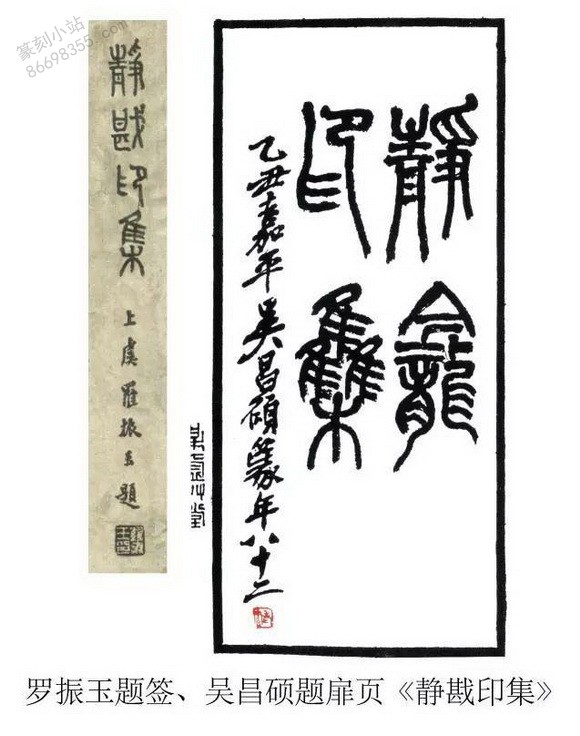 篆刻小站
86698355.com
靜戡印集
上虞羅振玉題
靜龕
印集
乙丑嘉平吳昌碩篆年八十二
罗振玉题签、吴昌硕题扉页《静戡印集》